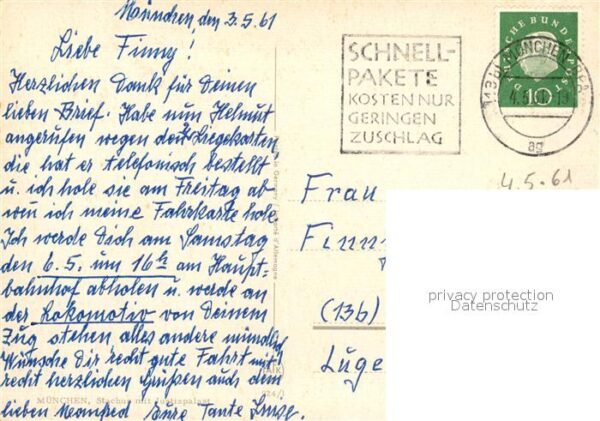 München, den 3.5.61
Liebe Finny!
Herzlichen Dank für Deinen
lieben Brief. Habe nun Helmut
angerufen wegen den Liegekarten
die hat er telefonisch bestellt
u. ich hole sie am Freitag ab
wen ich meine Fahrkarte hole.
Ich werde Dich am Samstag
den 6.5. um 16h am Haupt-
bahnhof abholen u. werde an
der Lokomotiv von Deinem
Zug stehen alles andere mündlich
Wünsche Dir recht gute Fahrt mit
recht herzlichen Grüßen auch dem
lieben Manfred Eure Tante
MÜNCHEN, Stachus mit Justizpalast
SCHNELL-
PAKETE
KOSTEN NUR
GERINGEN
ZUSCHLAG
DEUTSCHE BUNDESPOST
10
MÜNCHEN
ag
4.5.61
Frau
(13b)
privacy protection
Datenschutz